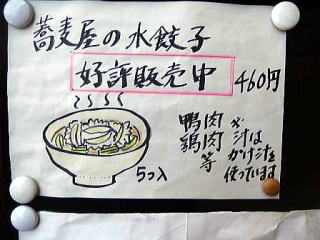 蕎麦屋の水餃子
好評販売中
460円
鴨肉
鶏肉
等
※汁は
かけ汁を
使っています
5つ入